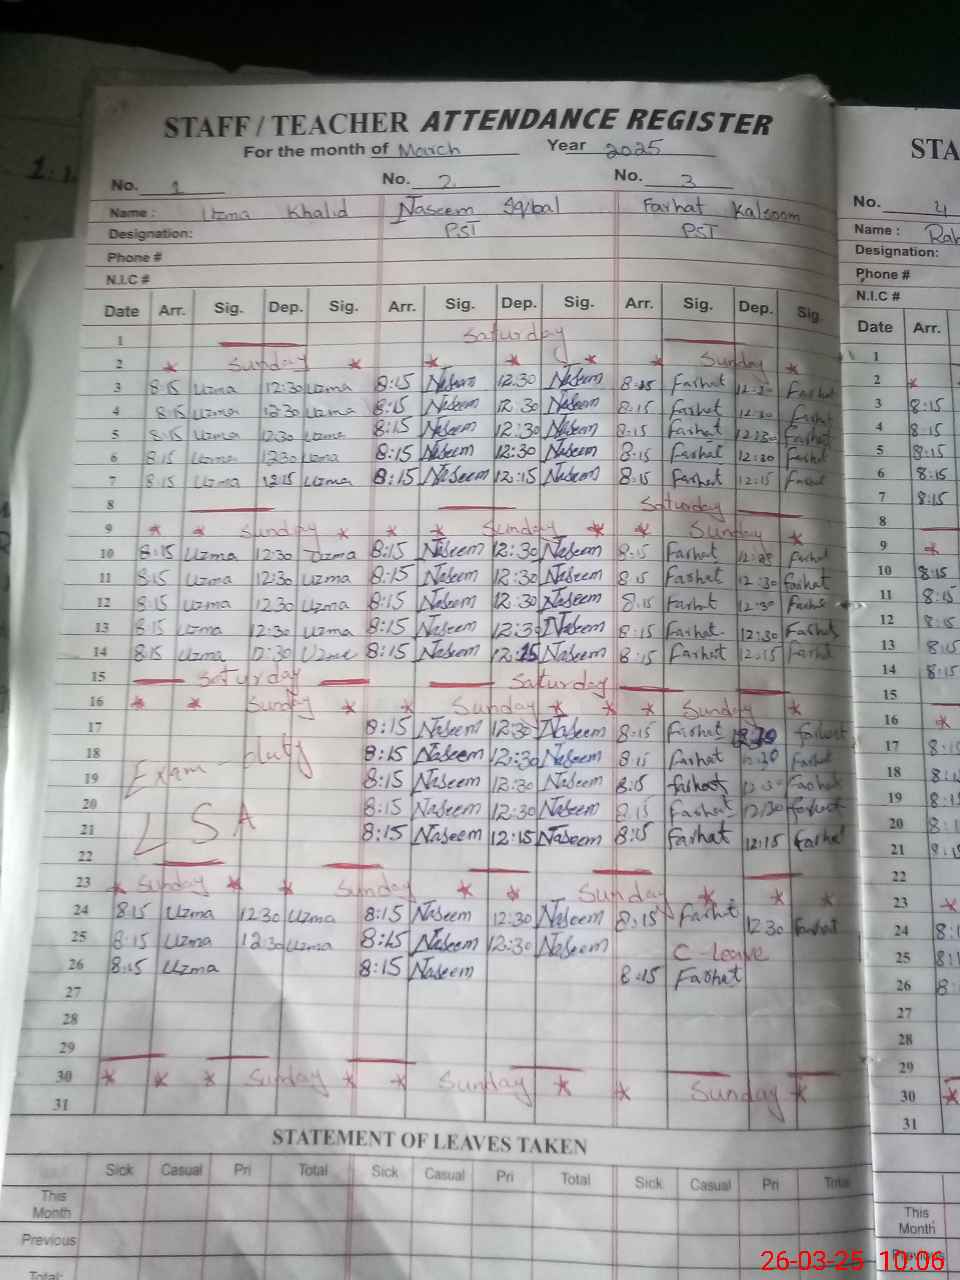 STAFF / TEACHER ATTENDANCE REGISTER
For the month of March Year 2025
STA
No. 1 No. 2 No. 3
No. 4
Name : Uzma Khalid Naseem Iqbal Farhat Kalsoom
Name : Rah
Designation: PST PST
Designation:
Phone #
Phone #
N.I.C #
N.I.C #
Date Arr. Sig. Dep. Sig. Arr. Sig. Dep. Sig. Arr. Sig. Dep. Sig.
Date Arr.
1 Saturday
1
2 * Sunday * * * * * Sunday *
2 *
3 8:15 Uzma 12:30 Uzma 8:15 Naseem 12:30 Naseem 8:15 Farhat 12:30 Farhat
3 8:15
4 8:15 Uzma 12:30 Uzma 8:15 Naseem 12:30 Naseem 8:15 Farhat 12:30 Farhat
4 8:15
5 8:15 Uzma 12:30 Uzma 8:15 Naseem 12:30 Naseem 8:15 Farhat 12:30 Farhat
5 8:15
6 8:15 Uzma 12:30 Uzma 8:15 Naseem 12:30 Naseem 8:15 Farhat 12:30 Farhat
6 8:15
7 8:15 Uzma 12:15 Uzma 8:15 Naseem 12:15 Naseem 8:15 Farhat 12:15 Farhat
7 8:15
8 Saturday
8
9 * * Sunday * * * Sunday * * Sunday *
9 *
10 8:15 Uzma 12:30 Uzma 8:15 Naseem 12:30 Naseem 8:15 Farhat Farhat
10 8:15
11 8:15 Uzma 12:30 Uzma 8:15 Naseem 12:30 Naseem 8:15 Farhat 12:30 Farhat
11 8:15
12 8:15 Uzma 12:30 Uzma 8:15 Naseem 12:30 Naseem 8:15 Farhat 12:30 Farhat
12 8:15
13 8:15 Uzma 12:30 Uzma 8:15 Naseem 12:30 Naseem 8:15 Farhat 12:30 Farhat
13 8:15
14 8:15 Uzma 12:30 Uzma 8:15 Naseem 12:15 Naseem 8:15 Farhat 12:15 Farhat
14 8:15
15 Saturday Saturday
15
16 * * Sunday * * Sunday * * * Sunday *
16 *
17 8:15 Naseem 12:30 Naseem 8:15 Farhat Farhat
17 8:15
18 Exam duty 8:15 Naseem 12:30 Naseem 8:15 Farhat 12:30 Farhat
18 8:15
19 8:15 Naseem 12:30 Naseem 8:15 Farhat 12:30 Farhat
19 8:15
20 LSA 8:15 Naseem 12:30 Naseem 8:15 Farhat 12:30 Farhat
20 8:1
21 8:15 Naseem 12:15 Naseem 8:15 Farhat 12:15 Farhat
21 8:15
22
22
23 * Sunday * * Sunday * * Sunday * * *
23 *
24 8:15 Uzma 12:30 Uzma 8:15 Naseem 12:30 Naseem 8:15 Farhat 12:30 Farhat
24 8:1
25 8:15 Uzma 12:30 Uzma 8:15 Naseem 12:30 Naseem C-leave
25 8:1
26 8:15 Uzma 8:15 Naseem 8:15 Farhat
26 8:
27
27
28
28
29
29
30 * * * Sunday * * Sunday * * Sunday *
30 *
31
31
STATEMENT OF LEAVES TAKEN
Sick Casual Pri Total Sick Casual Pri Total Sick Casual Pri Total
This Month
This Month
Previous
Previous
Total:
26-03-25 10:06